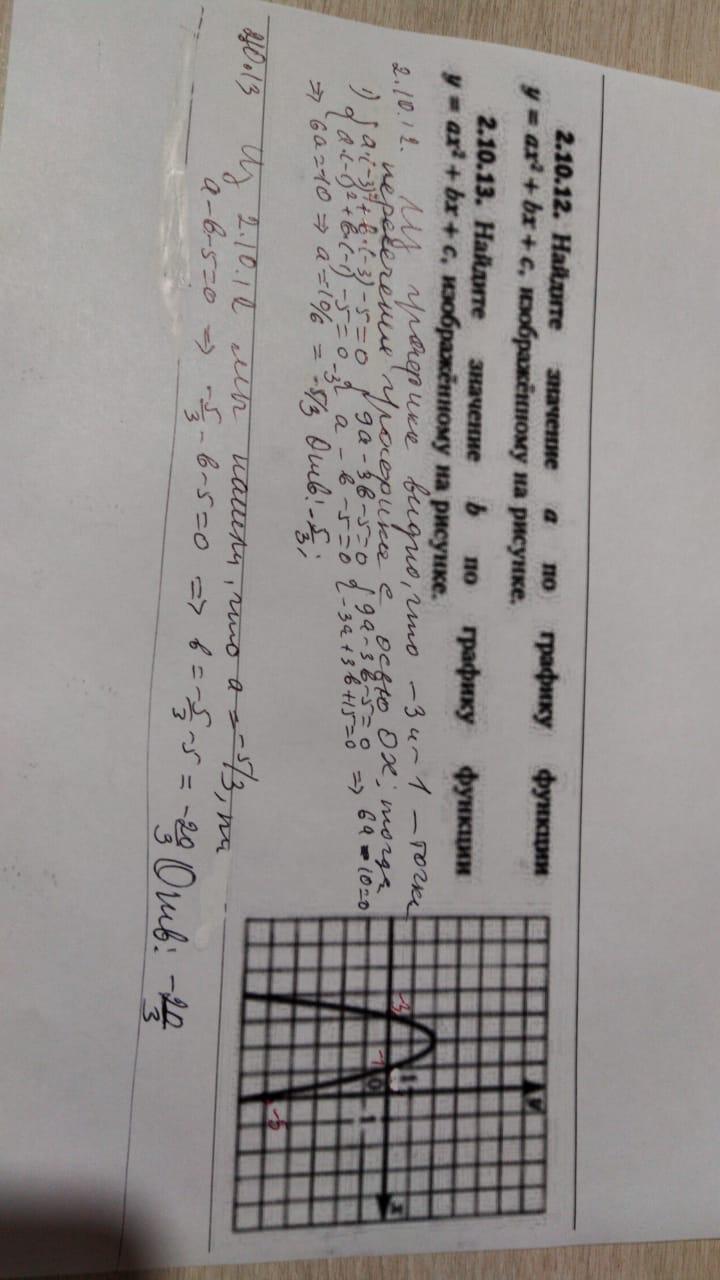 2.10.12. Найдите значение a по графику функции
y = ax² + bx + c, изображённому на рисунке.
2.10.13. Найдите значение b по графику функции
y = ax² + bx + c, изображённому на рисунке.
2.10.12. Из графике видно, что -3 и -1 – точки
пересечения графика с осью OX, тогда
1) { a·(-3)²+b·(-3)-5=0 { 9a-3b-5=0 { 9a-3b-5=0 => 6a+10=0
{ a·(-1)²+b·(-1)-5=0 { a-b-5=0 { -3a+3b+15=0
=> 6a=-10 => = -5/3 Отв: -5/3;
2.10.13 Из 2.10.12 мы нашли, что a = -5/3,
a-b-5=0 => -5/3-b-5=0 => b=-5/3-5=-20/3 Отв: -20/3
y
x
1
0
1
-3
-1
-5